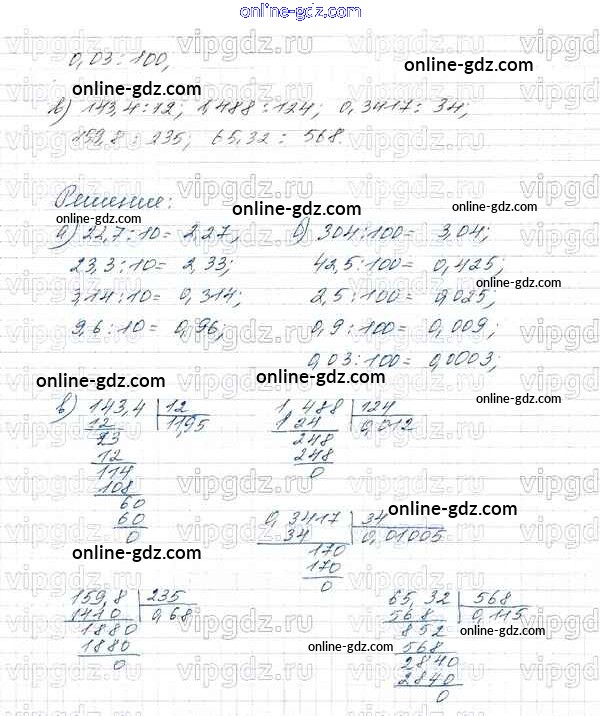 online-gdz.com
0,03 : 100,
online-gdz.com
в) 143,4 : 12; 1,488 : 124; 0,3417 : 34;
159,8 : 235; 65,32 : 568.
Решение:
online-gdz.com
online-gdz.com
online-gdz.com
а) 22,7 : 10 = 2,27; б) 304 : 100 = 3,04;
23,3 : 10 = 2,33; 42,5 : 100 = 0,425;
online-gdz.com
3,14 : 10 = 0,314; 2,5 : 100 = 0,025;
9,6 : 10 = 0,96; 0,9 : 100 = 0,009;
0,03 : 100 = 0,0003;
online-gdz.com
online-gdz.com
в) 143,4 12
12 11,95
23
12
114
108
60
60
0
1,488 124
124 0,012
248
248
0
online-gdz.com
0,3417 34
34 0,01005
170
170
0
online-gdz.com
online-gdz.com
159,8 235
1440 0,68
1880
1880
0
65,32 568
568 0,115
852
568
2840
2840
0
online-gdz.com
online-gdz.com
vipgdz.ru